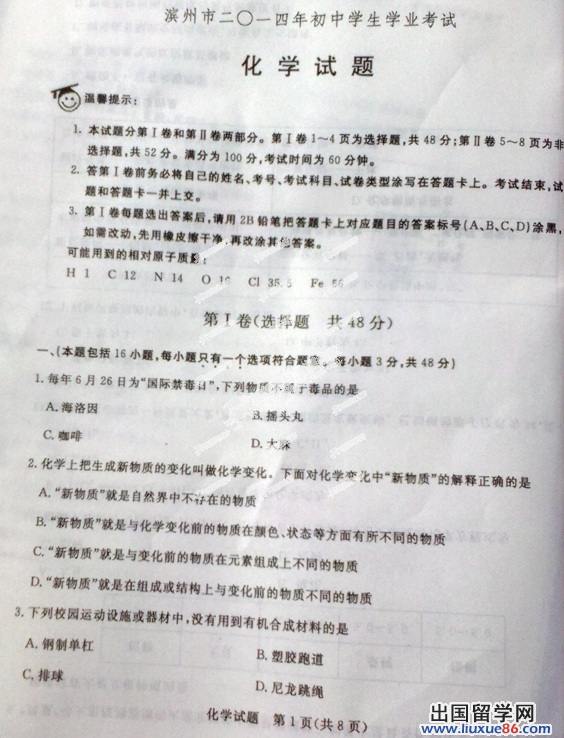 滨州市二〇一四年初中学生学业考试
化学试题
温馨提示:
1. 本试题分第Ⅰ卷和第Ⅱ卷两部分。第Ⅰ卷1~4页为选择题,共48分;第Ⅱ卷5~8页为非
选择题,共52分。满分为100分,考试时间为60分钟。
2. 答第Ⅰ卷前务必将自己的姓名、考号、考试科目、试卷类型涂写在答题卡上。考试结束,试
题和答题卡一并上交。
3. 第Ⅰ卷每题选出答案后,请用2B铅笔把答题卡上对应题目的答案标号(A、B、C、D)涂黑,
如需改动,先用橡皮擦干净,再改涂其他答案。
可能用到的相对原子质量:
H 1 C 12 N 14 O 16 Cl 35.5 Fe 56
第Ⅰ卷(选择题 共48分)
一、(本题包括16小题,每小题只有一个选项符合题意。每小题3分,共48分)
1. 每年6月26日为“国际禁毒日”,下列物质不属于毒品的是
A. 海洛因 B. 摇头丸
C. 咖啡 D. 大麻
2. 化学上把生成新物质的变化叫做化学变化。下面对化学变化中“新物质”的解释正确的是
A. “新物质”就是自然界中不存在的物质
B. “新物质”就是与化学变化前的物质在颜色、状态等方面有所不同的物质
C. “新物质”就是与变化前的物质在元素组成上不同的物质
D. “新物质”就是在组成或结构上与变化前的物质不同的物质
3. 下列校园运动设施或器材中,没有用到有机合成材料的是
A. 钢制单杠 B. 塑胶跑道
C. 排球 D. 尼龙跳绳
化学试题 第1页(共8页)
出国留学网
www.liuxue86.com